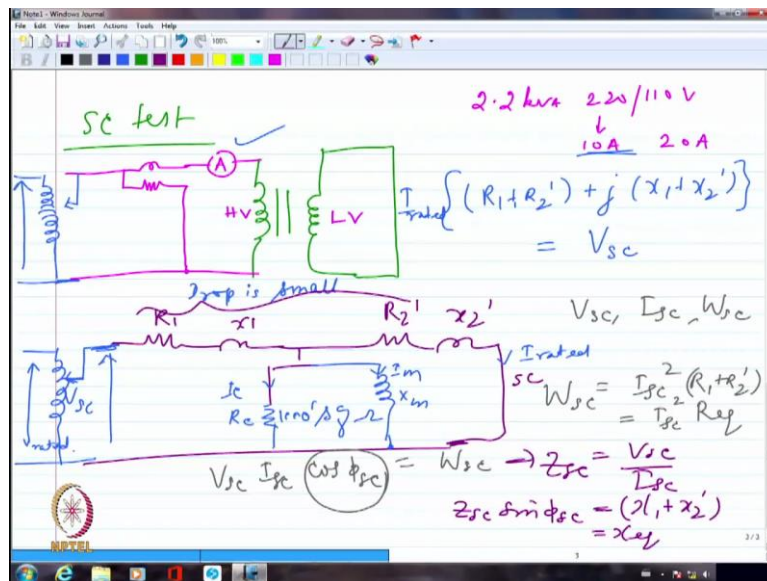 Note1 - Windows Journal
File Edit View Insert Actions Tools Help
100%
B I
SC test
2.2 kVA 220/110 V
10A 20A
A
HV
LV
I rated {(R1+R2') + j (x1+x2')}
= Vsc
Drop is small
R1 x1 R2' x2'
Vsc, Isc, Wsc
I rated
sc
Vsc
rated
Ic
Rc 1000's of Ω
Im
Xm
Wsc = Isc² (R1+R2')
= Isc² Req
Vsc Isc cos φsc = Wsc → Zsc = Vsc / Isc
Zsc sin φsc = (x1+x2')
= xeq
NPTEL
3/3
3